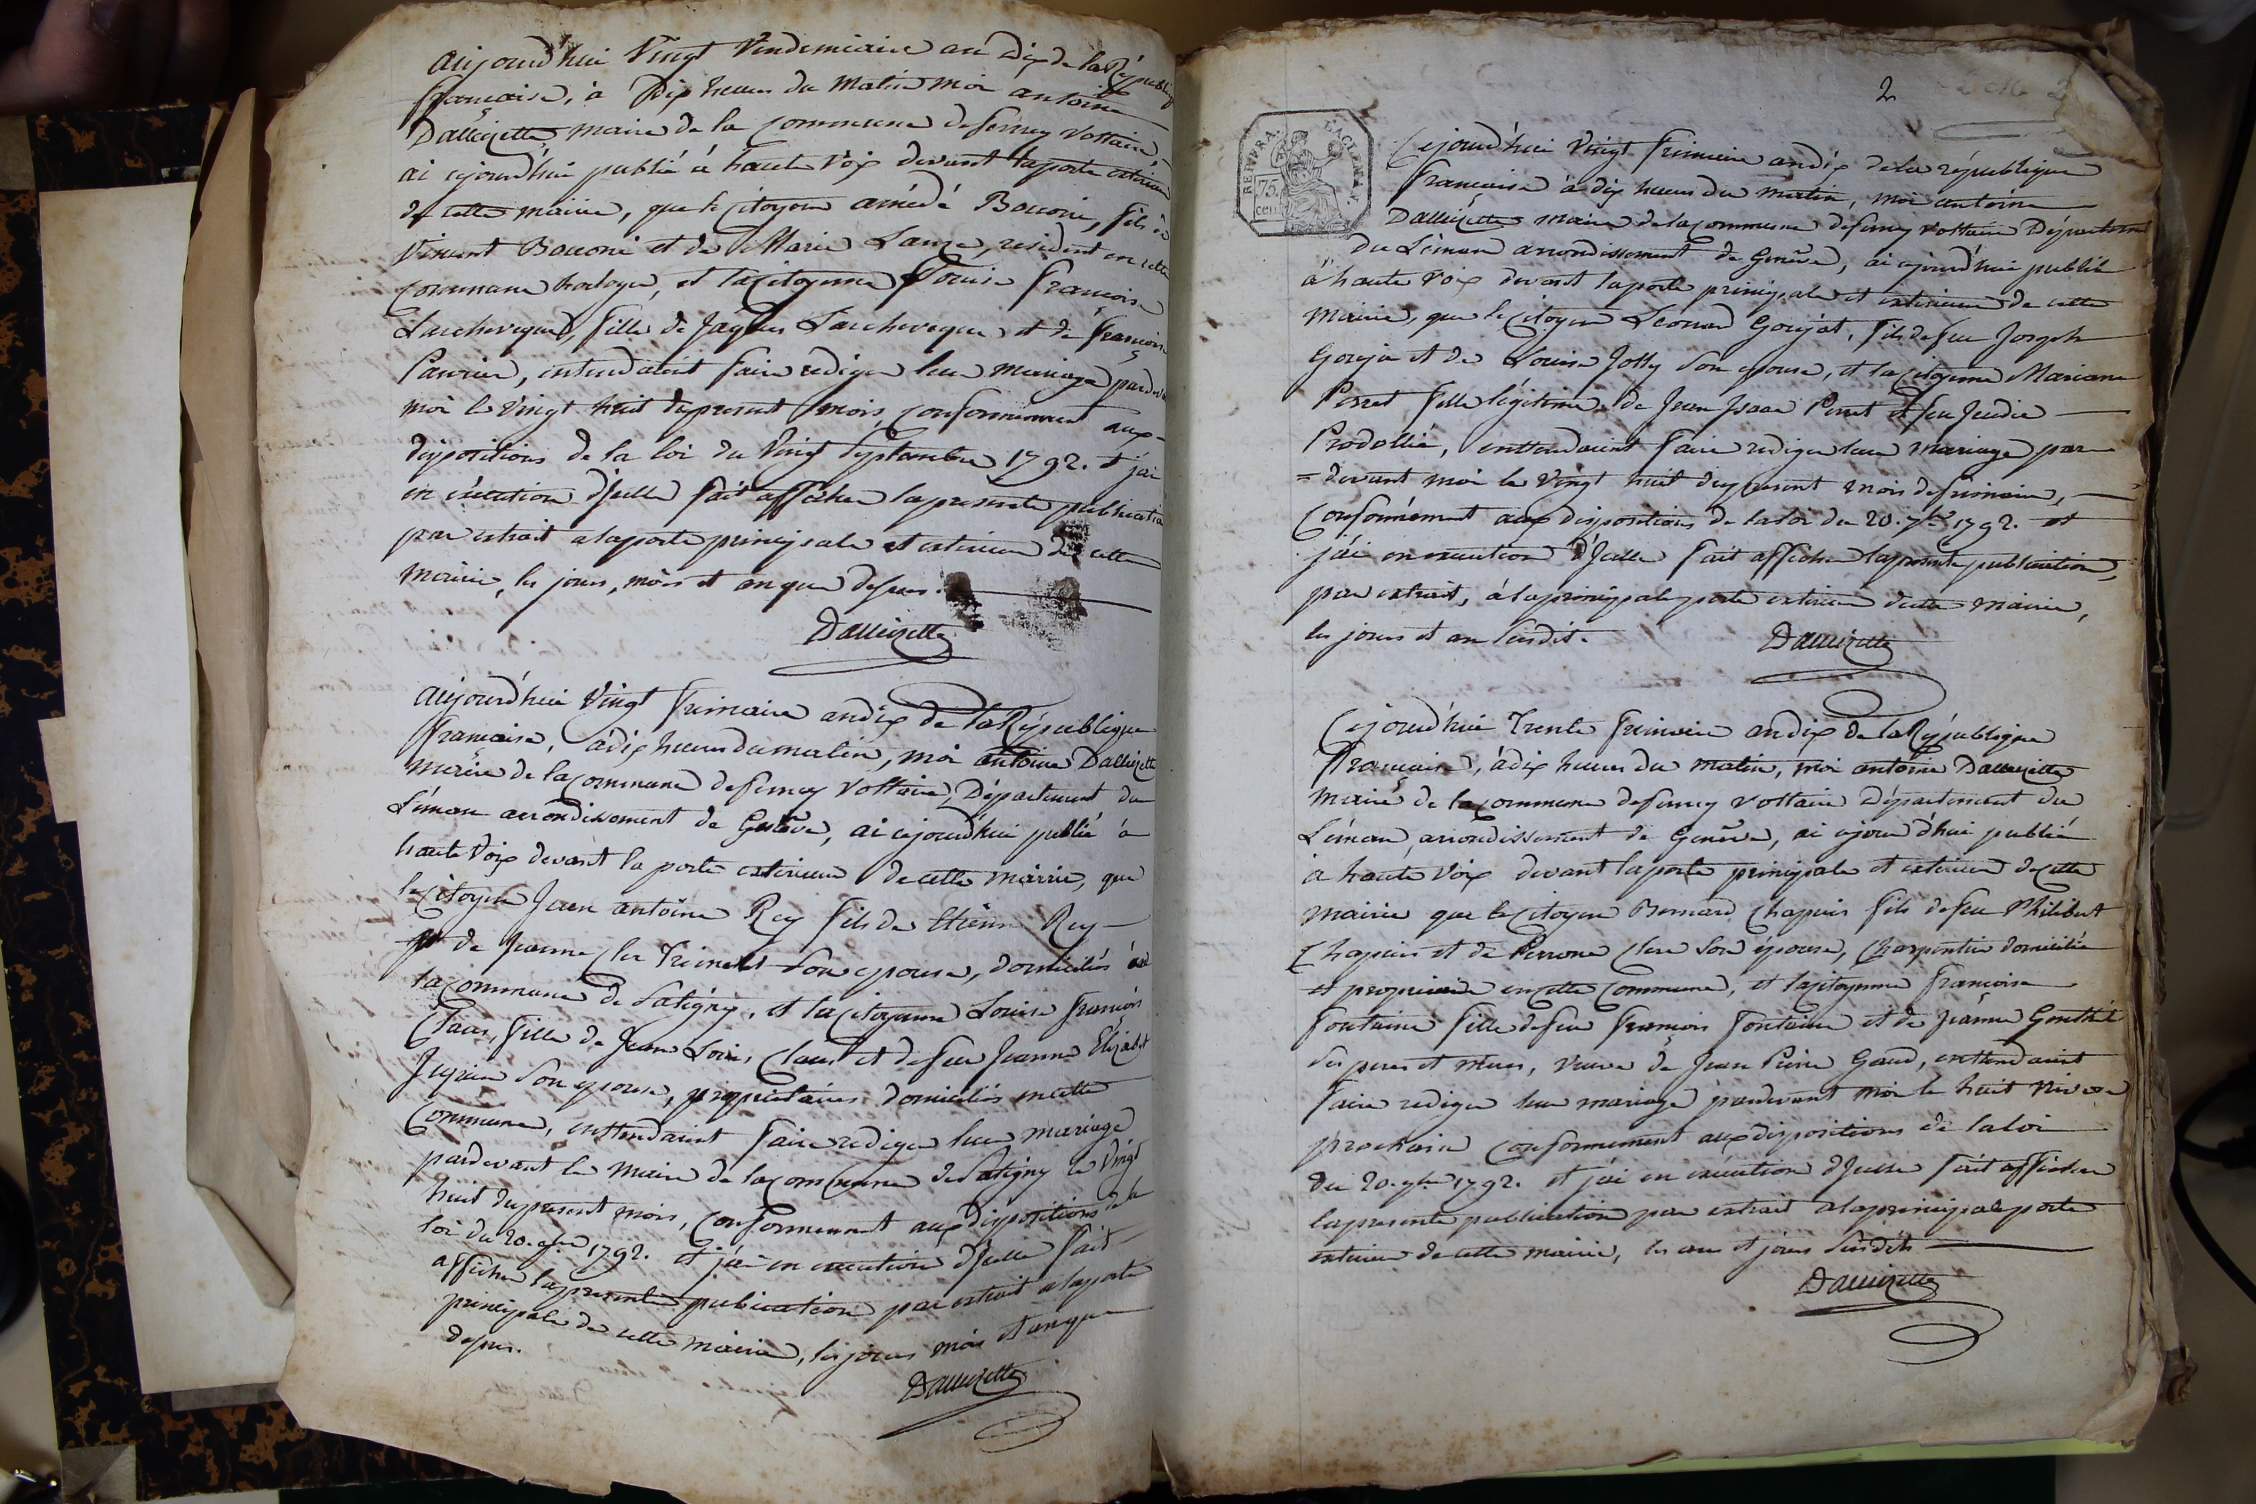 aujourd'hui Vingt Vendemiaire an Dix de la Républiq
française, à Dix heures du matin moi antoine
Dalleizette maire de la commune de ferney voltaire,
ai cejourd'hui publié à haute voix devant la porte exterieure
de cette mairie, que le citoyen amédé Bouconi, fils de
Vincent Bouconi et de Marie Lauze, resident en cette
commune horloger, et la citoyenne Louise françoise
Larcheveque, fille de Jaques Larcheveque et de françoise
Pauvier, entendaient faire rediger leur mariage pardev
moi le Vingt huit du present mois, conformement aux
dispositions de la loi du Vingt Septembre 1792. et j'ai
en éxécution d'Icelle fait afficher la presente publication
par extrait a la porte principale et exterieure de cette
mairie, les jours, mois et an que dessus.
Dalleizette
aujourd'hui Vingt frimaire an dix de la République
française, à dix heures du matin, moi antoine Dalleizette
maire de la commune de ferney Voltaire, Département du
Léman arrondissement de Genève, ai cejourd'hui publié à
haute Voix devant la porte exterieure de cette mairie, que
le citoyen Jean antoine Rey fils de Etienne Rey
et de Jeanne son epouse, domiciliés à
la commune de Satigny, et la citoyenne Louise françoise
Claus, fille de Jean Louis Claus et de feu Jeanne Elizabet
son epouse, propriétaires domiciliés en cette
Commune, entendaient faire rediger leur mariage
pardevant le maire de la commune de Satigny le Vingt
huit du present mois, conformement aux dispositions de la
loi du 20. 7bre 1792. et j'ai en execution d'Icelle fait
afficher la presente publication par extrait a la porte
principale de cette mairie, les jours mois et an que
dessus.
Dalleizette
2
REP. FRA.
75.
cen.
Cejourd'hui Vingt frimaire an dix de la république
française à dix heures du matin, moi antoine
Dalleizette maire de la commune de ferney voltaire Département
du Léman arrondissement de Genève, ai cejourd'hui publié
à haute Voix devant la porte principale et exterieure de cette
mairie, que le citoyen Leonard Goujat, fils de feu Joseph
Goujat et de Louise Jolly son epouse, et la citoyenne Mariane
Perret fille légitime de Jean Isaac Perret et feu Judie
Prodollié, entendaient faire rediger leur mariage par
= devant moi le Vingt huit du present mois de frimaire,
Conformément aux dispositions de la loi du 20. 7bre 1792. et
j'ai en execution d'Icelle fait afficher la presente publication,
par extrait, à la principale porte exterieure de cette mairie,
les jours et an susdits.
Dalleizette
Cejourd'hui Trente frimaire an dix de la République
française, à dix heures du matin, moi antoine Dalleizette
maire de la commune de ferney voltaire Département du
Léman, arrondissement de Genève, ai cejour d'hui publié
à haute Voix devant la porte principale et exterieure de cette
mairie que le citoyen Bernard Chapuis fils de feu Philibert
Chapuis et de Perrone Clere son épouse, Charpentier domicilié
et propriétaire en cette commune, et la citoyenne françoise
fontaine fille de feu françois fontaine et de Jeanne Gonthié
ses peres et meres, veuve de Jean Pierre Gaud, entendaient
faire rediger leur mariage pardevant moi le huit Nivose
prochain conformement aux dispositions de la loi
du 20. 7bre 1792. et j'ai en éxécution d'Icelle fait afficher
la presente publication par extrait a la principale porte
exterieure de cette mairie, les an et jours susdits
Dalleizette